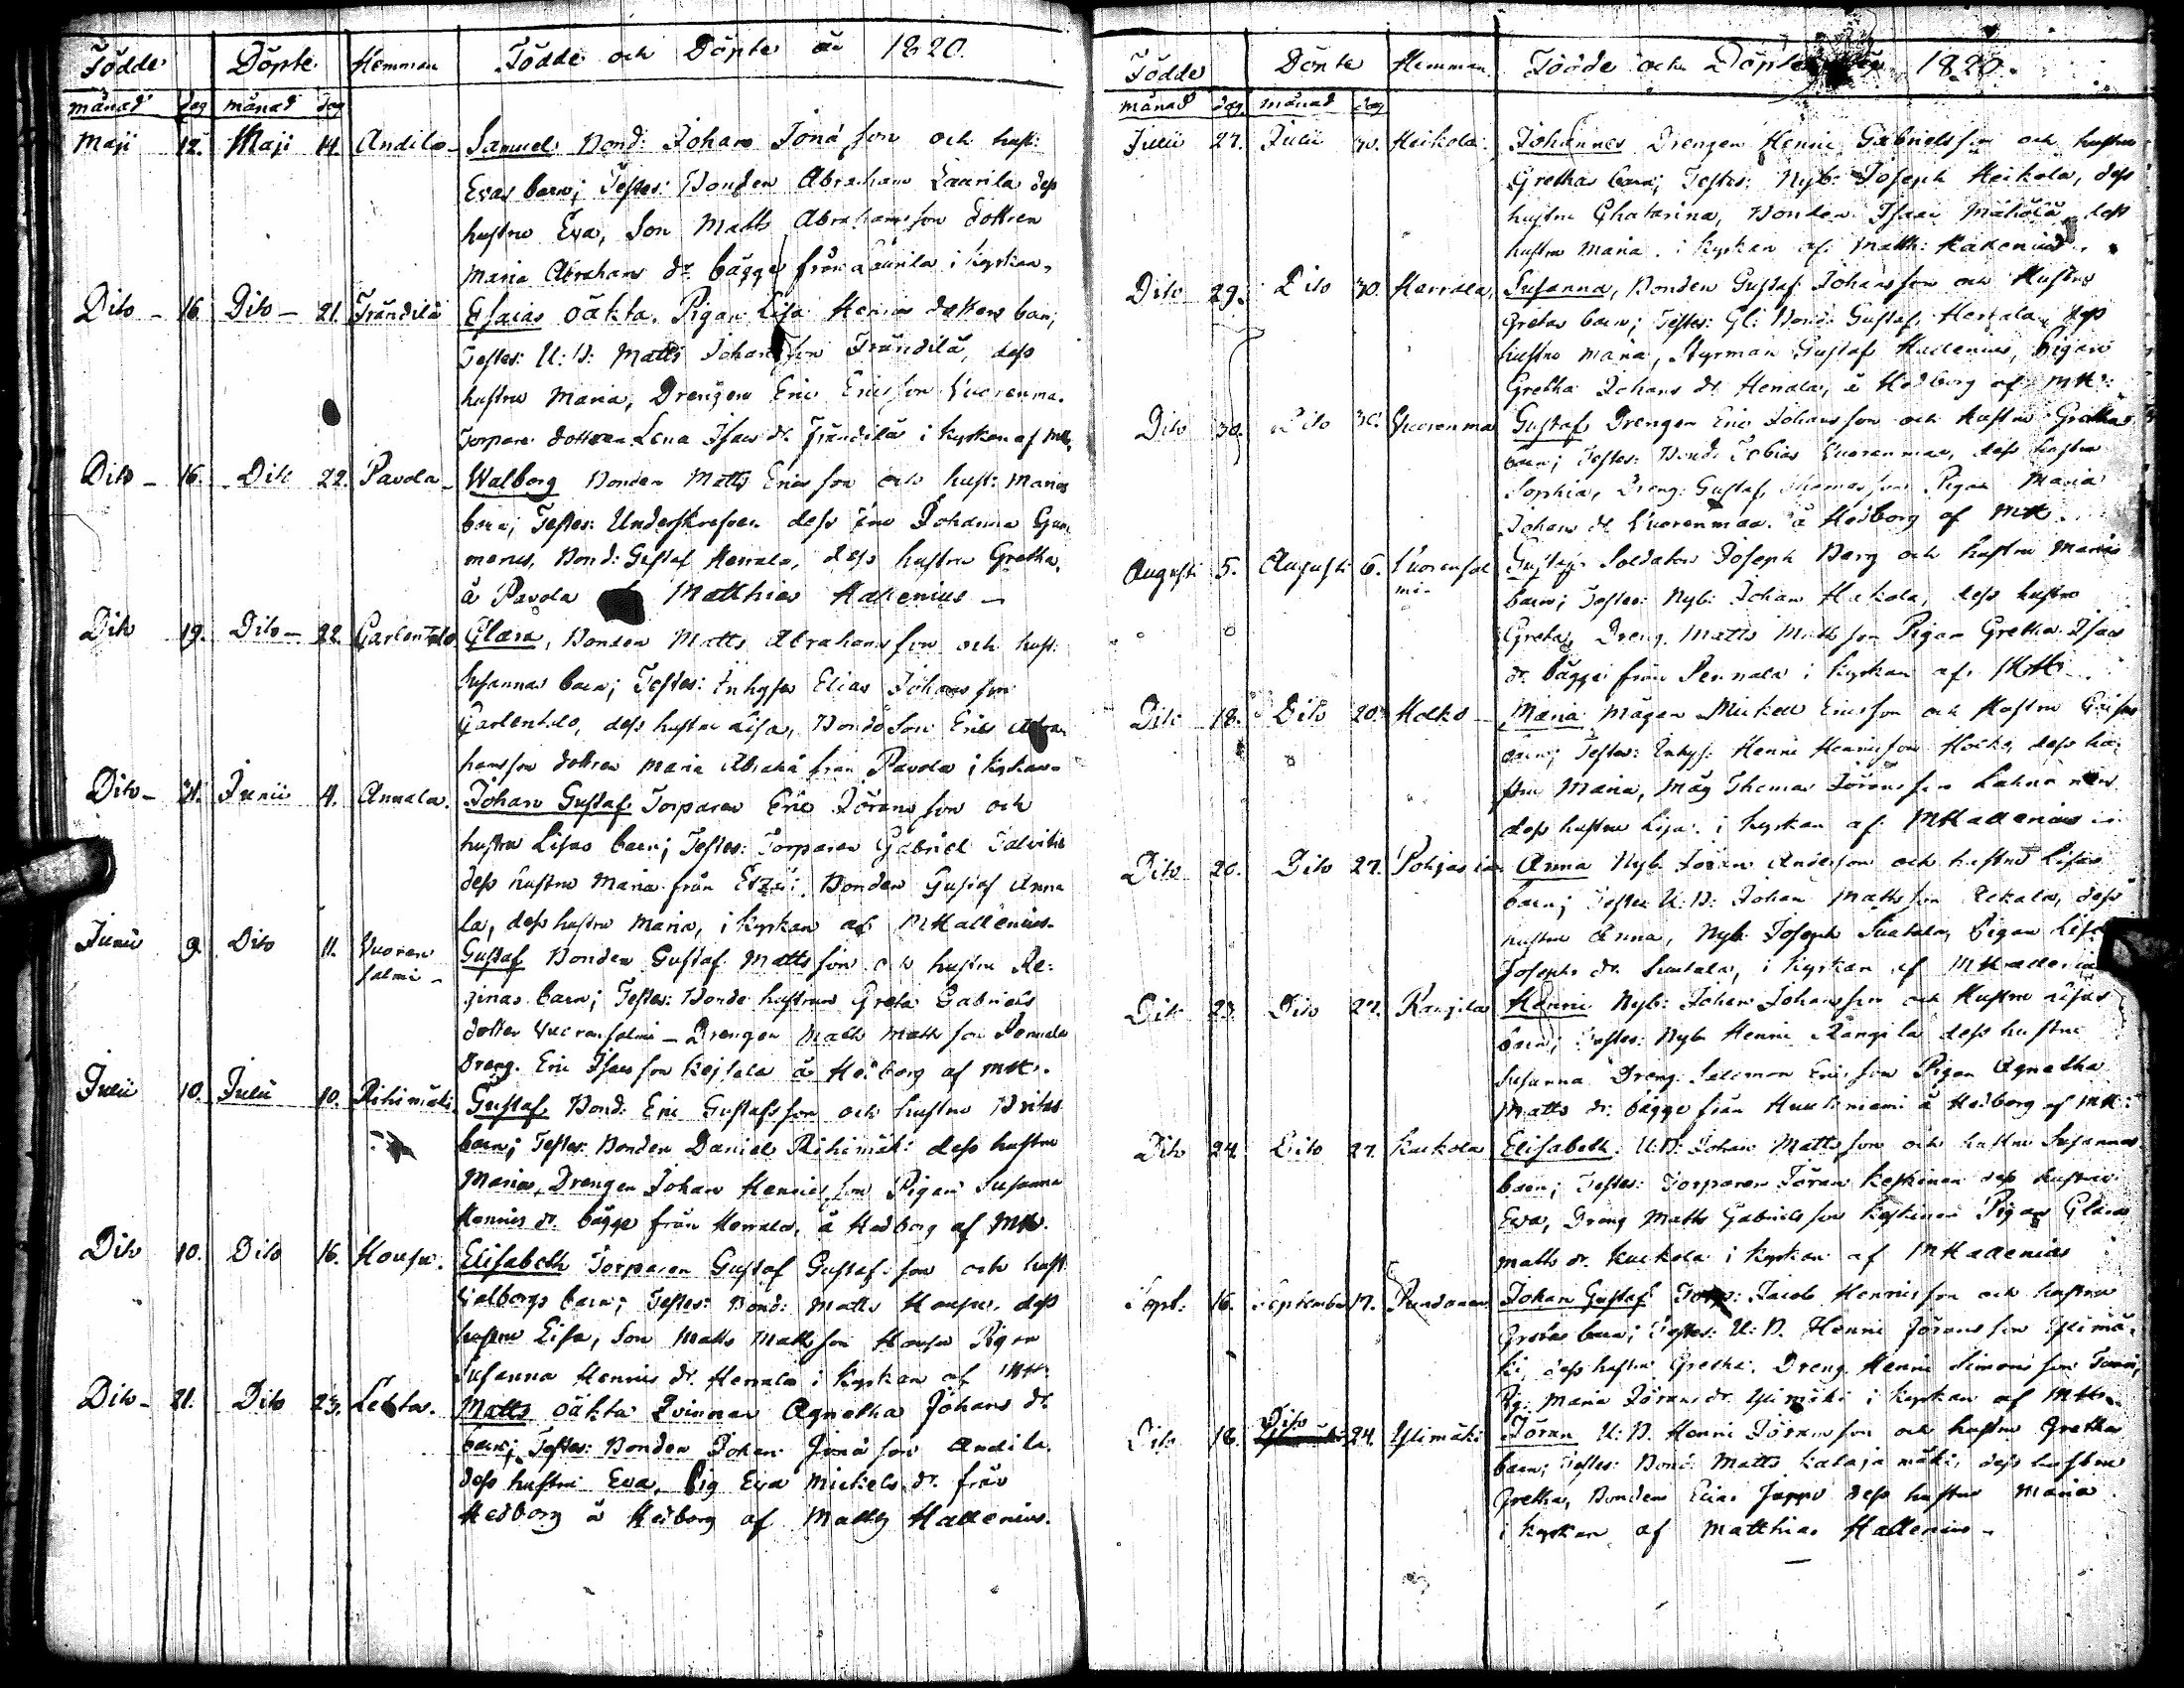 Födde Döpte Hemman Födde och Döpte år 1820.
månad dag månad dag
Maji 12. Maji 14. Andila Samuel Bond: Johan Jona son och hust:
Evas barn; Testes: Bonden Abraham Laurila dess
hustru Eva, Son Matts Abrahamsson Dottren
Maria Abrahams dr bägge från Laurila i kyrkan
Dito 16 Dito 21. Frändilä Esaias oäkta, Pigan Lisa Henrics dotters barn;
Testes: U: B: Matts Johansson Frändilä, dess
hustru Maria, Drengen Eric Ericsson Vuorenma.
Torpare dottren Lena Isacs dr. Frändilä i kyrkan af MH.
Dito 16. Dito 22. Pavola Walborg Bonden Matts Ericsson och hust: Marias
barn; Testes: Underskrefven dess fru Johanna Gum
merus, Bond: Gustaf Herrala, dess hustru Gretha,
å Pavola Matthias Hallenius
Dito 19. Dito 22. Carlentalo Clara, Bonden Matts Abrahamsson och hust:
Susannas barn; Testes: Inhyses Elias Johansson
Carlentalo, dess hustru Lisa, Bonde Son Eric Abra
hamsson dottren Maria Abrahā från Pavola i kyrkan
Dito 31. Junii 4. Annala. Johan Gustaf Torparen Eric Jöransson och
hustru Lisas barn; Testes: Torparen Gabriel Talvitie
dess hustru Maria från Etzäri. Bonden Gustaf Anna
la, dess hustru Maria, i kyrkan af MHallenius.
Junii 9. Dito 11. Vuoren Gustaf Bonden Gustaf Mattsson och hustru Re:
salmi ginas barn; Testes: Bonde hustrun Greta Gabriels
dotter Vuorensalmi Drengen Matts Matts son Pennala
Dreng. Eric Isacsson Keisala å Hedborg af MH.
Julii 10. Julii 10. Rihimäki Gustaf Bond: Eric Gustafsson och hustru Britas
barn; Testes: Bonden Daniel Rihimäki dess hustru
Maria, Drengen Johan Henricsson Pigan Susanna
Henrics dr. bägge från Herrala, å Hedborg af MH.
Dito 10. Dito 16. Houpu. Elisabeth Torparen Gustaf Gustafsson och hust:
Valborgs barn; Testes: Bond: Matts Houpu, dess
hustru Lisa, Son Matts Mattsson Houpu Pigan
Susanna Henrics dr. Herrala i kyrkan af MH.
Dito 21. Dito 23. Lehto. Matts oäkta Qvinnan Agnetha Johans dr
barn; Testes: Bonden Johan Jona son Andila
dess hustru Eva, Pig Eva Mickels dr. från
Hedborg å Hedborg af Matths Hallenius.
Födde Döpte Hemman Födde och Döpte 1820.
månad dag månad dag
Julii 27. Julii 30. Heikola Johannes Drengen Henric Gabrielsson och hustru
Grethas barn; Testes: Nyb: Joseph Heikola, dess
hustru Chatarina, Bonden Isaac Mähölä, dess
hustru Maria. i kyrkan af Matth: Hallenius.
Dito 29. Dito 30. Herrala, Susanna, Bonden Gustaf Johansson och Hustru
Gretas barn; Testes: Gl: Bond: Gustaf Herrala, dess
hustru Maria, Styrman Gustaf Hallenius, Pigan
Gretha Johans dr Herrala, å Hedborg af MH:
Dito 30. Dito 30. Vuorenma Gustaf Drengen Eric Johansson och hustru Grethas
barn; Testes: Bond: Tobias Vuorenmaa, dess hustru
Sophia, Dreng: Gustaf Thomasson Pigan Maria
Johans dr Vuorenmaa. å Hedborg af MH.
Augusti 5. Augusti 6. Vuorensal Gustaf Soldaten Joseph Berg och hustru Marias
mi barn; Testes: Nyb: Johan Hakola, dess hustru
Greta, Dreng. Matts Matts son Pigan Gretha Isacs
dr. bägge från Pennala i kyrkan af MH.
Dito 18. Dito 20. Holko Maria Mågen Mickel Ericsson och Hustru
barn; Testes: Inhys. Henric Henricsson Holko, dess hu
stru Maria, Måg Thomas Jöransson
dess hustru Lisa. i kyrkan af MHallenius
Dito 20. Dito 27. Anna Nyb. Jöran Andersson och hustru Lisas
barn; Testes U: B: Johan Mattsson dess
hustru Anna, Nyb: Joseph Suutala, Pigan Lisa
Josephs dr. Suutala, i kyrkan af MHallenius
Dito 23. Dito 27. Rangila Henric Nyb: Johan Johansson och Hustru Lisas
barn; Testes: Nyb. Henric Rangila dess hustru
Susanna Dreng Salomon Ericsson Pigan Agnetha
Matts dr. bägge från Huutiniemi å Hedborg af MH:
Dito 24. Dito 27. Kuckola Elisabeth. U:B: Johan Mattsson och hustru Susannas
barn; Testes: Torparen Jöran Keskinen dess hustru
Eva, Dreng Matts Gabrielsson Keskinen Pigan Clara
Matts dr. Kuckola i kyrkan af MHallenius
Sept: 16. September 17. Johan Gustaf Torp: Jacob Henricsson och hustru
Gretas barn; Testes: U: B. Henric Jöransson Ylimä
ki, dess hustru Gretha. Dreng. Henric Simonsson
Pig. Maria Jörans dr. Ylimäki i kyrkan af MH.
Dito 18. Dito 24. Ylimäki Jöran U: B. Henric Jöransson och hustru Gretha
barn; Testes: Bond: Matts Kalajamäki, dess hustru
Gretha, Bonden Elias Jappo dess hustru Maria
i kyrkan af Matthias Hallenius